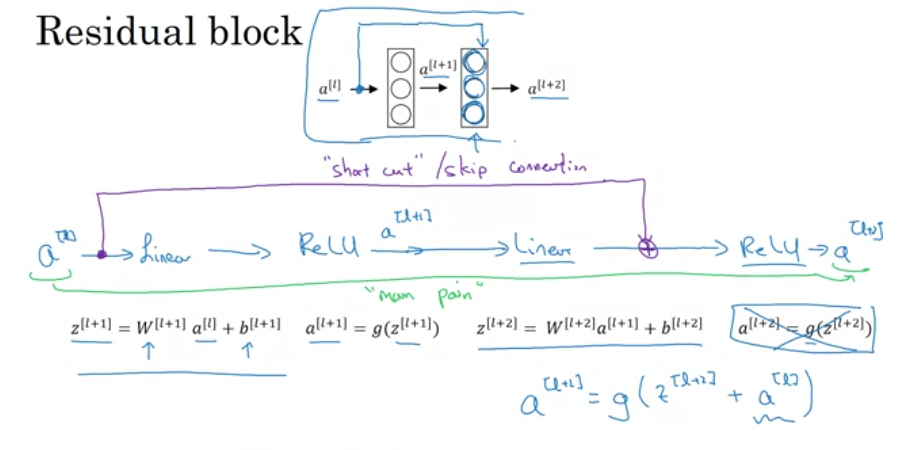 Residual block
a[l] a[l+1] a[l+2]
"short cut" /skip connection
a[l] → Linear → ReLU a[l+1] → Linear → ⊕ → ReLU → a[l+2]
"main path"
z[l+1] = W[l+1] a[l] + b[l+1] a[l+1] = g(z[l+1]) z[l+2] = W[l+2]a[l+1] + b[l+2] a[l+2] = g(z[l+2])
a[l+2] = g(z[l+2] + a[l])